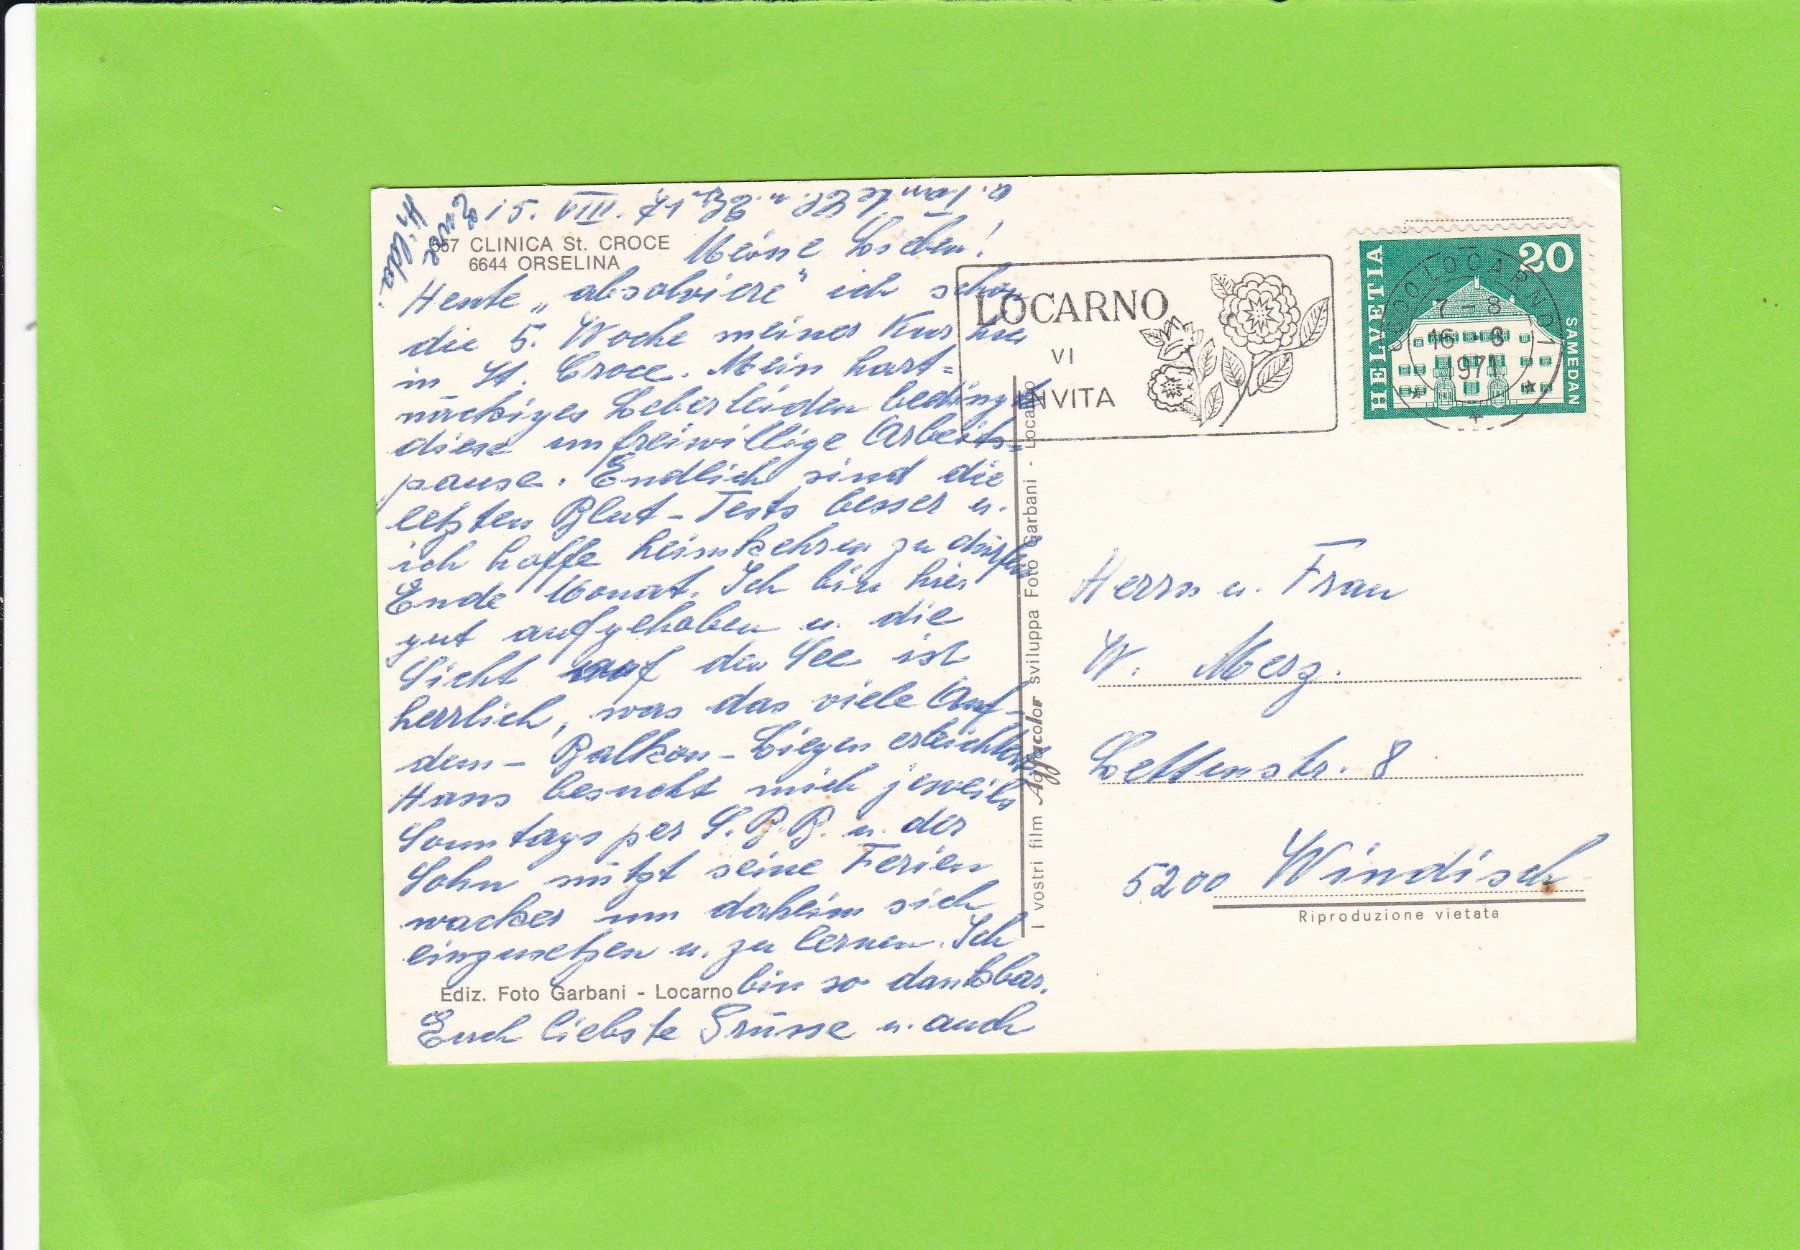 15. VIII. 71
657 CLINICA St. CROCE
6644 ORSELINA
Meine Lieben!
Heute „absolviere" ich schon
die 5. Woche meiner Kur hier
in St. Croce. Mein hart=
näckiges Leberleiden bedingt
diese unfreiwillige Arbeits=
pause. Endlich sind die
letzten Blut-Tests besser u.
ich hoffe heimkehren zu dürfen
Ende Monat. Ich bin hier
gut aufgehoben u. die
Sicht auf den See ist
herrlich, was das viele Auf-
dem-Balkon-Liegen erleichtert.
Hans besucht mich jeweils
Sonntags per S.B.B. u. der
Sohn nützt seine Ferien
wacker um daheim sich
einzusetzen u. zu lernen. Ich
bin so dankbar.
Ediz. Foto Garbani - Locarno
Euch liebste Grüsse u. auch
a. Tante
Eure
Hilda.
I vostri film Agfacolor sviluppa Foto Garbani - Locarno
LOCARNO
VI
INVITA
HELVETIA
20
SAMEDAN
6600 LOCARNO 1
7-8
16-8
1971
Herrn u. Frau
W. Merz.
Lettenstr. 8
5200 Windisch
Riproduzione vietata